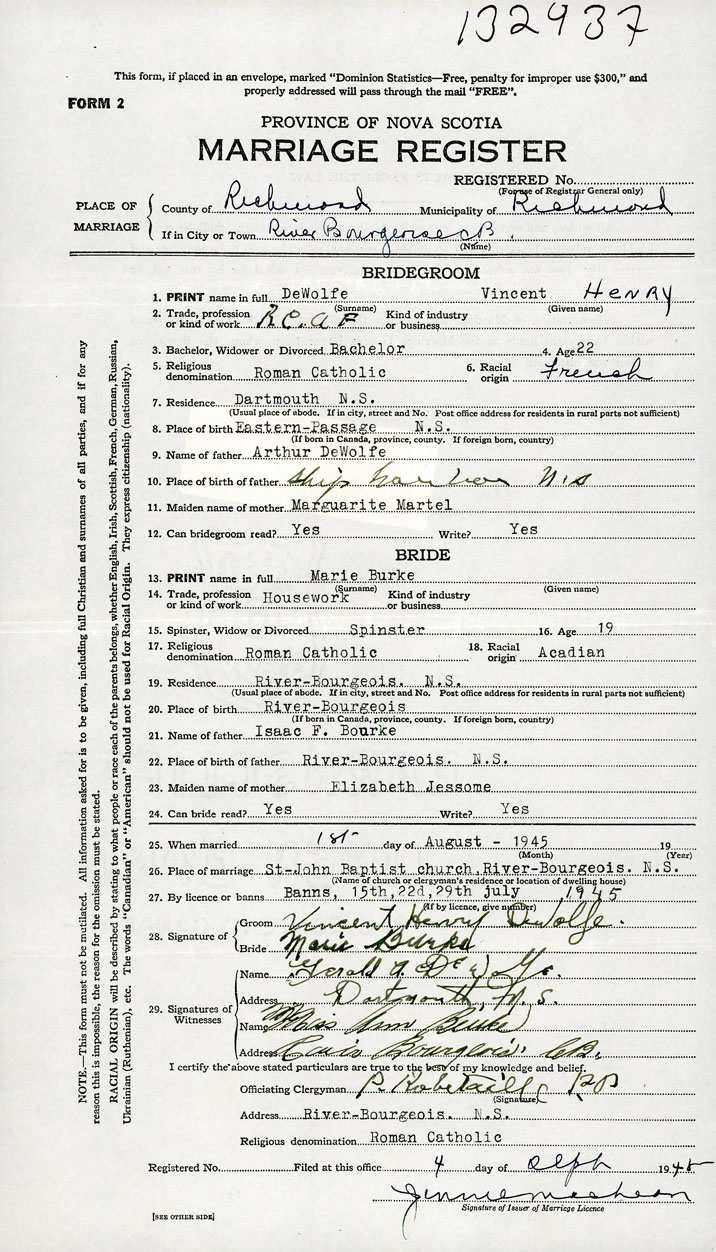 132937
This form, if placed in an envelope, marked "Dominion Statistics—Free, penalty for improper use $300," and
properly addressed will pass through the mail "FREE".
FORM 2
PROVINCE OF NOVA SCOTIA
MARRIAGE REGISTER
REGISTERED No.
(For use of Registrar General only)
PLACE OF MARRIAGE
County of Richmond Municipality of Richmond
If in City or Town River Bourgeoise CB
(Name)
BRIDEGROOM
1. PRINT name in full DeWolfe Vincent Henry
(Surname) (Given name)
2. Trade, profession or kind of work R.C.A.F Kind of industry or business
3. Bachelor, Widower or Divorced Bachelor 4. Age 22
5. Religious denomination Roman Catholic 6. Racial origin French
7. Residence Dartmouth N.S.
(Usual place of abode. If in city, street and No. Post office address for residents in rural parts not sufficient)
8. Place of birth Eastern-Passage N.S.
(If born in Canada, province, county. If foreign born, country)
9. Name of father Arthur DeWolfe
10. Place of birth of father ship harbor N.S
11. Maiden name of mother Marguarite Martel
12. Can bridegroom read? Yes Write? Yes
BRIDE
13. PRINT name in full Marie Burke
(Surname) (Given name)
14. Trade, profession or kind of work Housework Kind of industry or business
15. Spinster, Widow or Divorced Spinster 16. Age 19
17. Religious denomination Roman Catholic 18. Racial origin Acadian
19. Residence River-Bourgeois. N.S.
(Usual place of abode. If in city, street and No. Post office address for residents in rural parts not sufficient)
20. Place of birth River-Bourgeois
(If born in Canada, province, county. If foreign born, country)
21. Name of father Isaac F. Bourke
22. Place of birth of father River-Bourgeois. N.S.
23. Maiden name of mother Elizabeth Jessome
24. Can bride read? Yes Write? Yes
25. When married 1st day of August - 1945 19
(Month) (Year)
26. Place of marriage St-John Baptist church, River-Bourgeois. N.S.
(Name of church or clergyman's residence or location of dwelling house)
27. By licence or banns Banns, 15th, 22d, 29th july 1945
(If by licence, give number)
28. Signature of
Groom Vincent Henry DeWolfe.
Bride Marie Burke
29. Signatures of Witnesses
Name Gerald A. DeWolfe.
Address Dartmouth, N.S.
Name Miss Ann Burke
Address Bourgeois, CB.
I certify the above stated particulars are true to the best of my knowledge and belief.
Officiating Clergyman P. Robetaille PP
(Signature)
Address River-Bourgeois. N.S.
Religious denomination Roman Catholic
Registered No. Filed at this office 4 day of 1945
Signature of Issuer of Marriage Licence
[SEE OTHER SIDE]
NOTE.—This form must not be mutilated. All information asked for is to be given, including full Christian and surnames of all parties, and if for any
reason this is impossible, the reason for the omission must be stated.
RACIAL ORIGIN will be described by stating to what people or race each of the parents belongs, whether English, Irish, Scottish, French, German, Russian,
Ukrainian (Ruthenian), etc. The words "Canadian" or "American" should not be used for Racial Origin. They express citizenship (nationality).